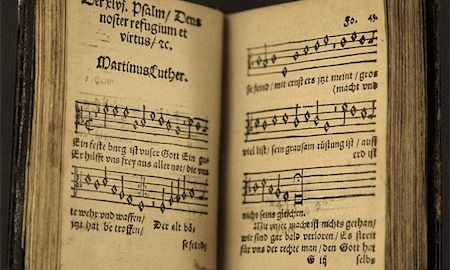 Der xlvj. Psalm/ Deus
noster refugium et
virtus/ ꝛc.
Martinus Luther.
Ein feste burg ist vnser Gott Ein gu
Er hilfft vns frey aus aller not/ die vns
te wehr vnd waffen/
jtzt hat be troffen/ Der alt bö⸗
se feinde
se feind/ mit ernst ers jtzt meint/ gros
(macht vnd
viel list/ sein grausam rüstung ist/ auff
erd ist
nicht seins gleichen.
Mit vnser macht ist nichts gethan/
wir sind gar bald verloren/ Es streit
fur vns der rechte man/ den Gott hat
G iij selbs